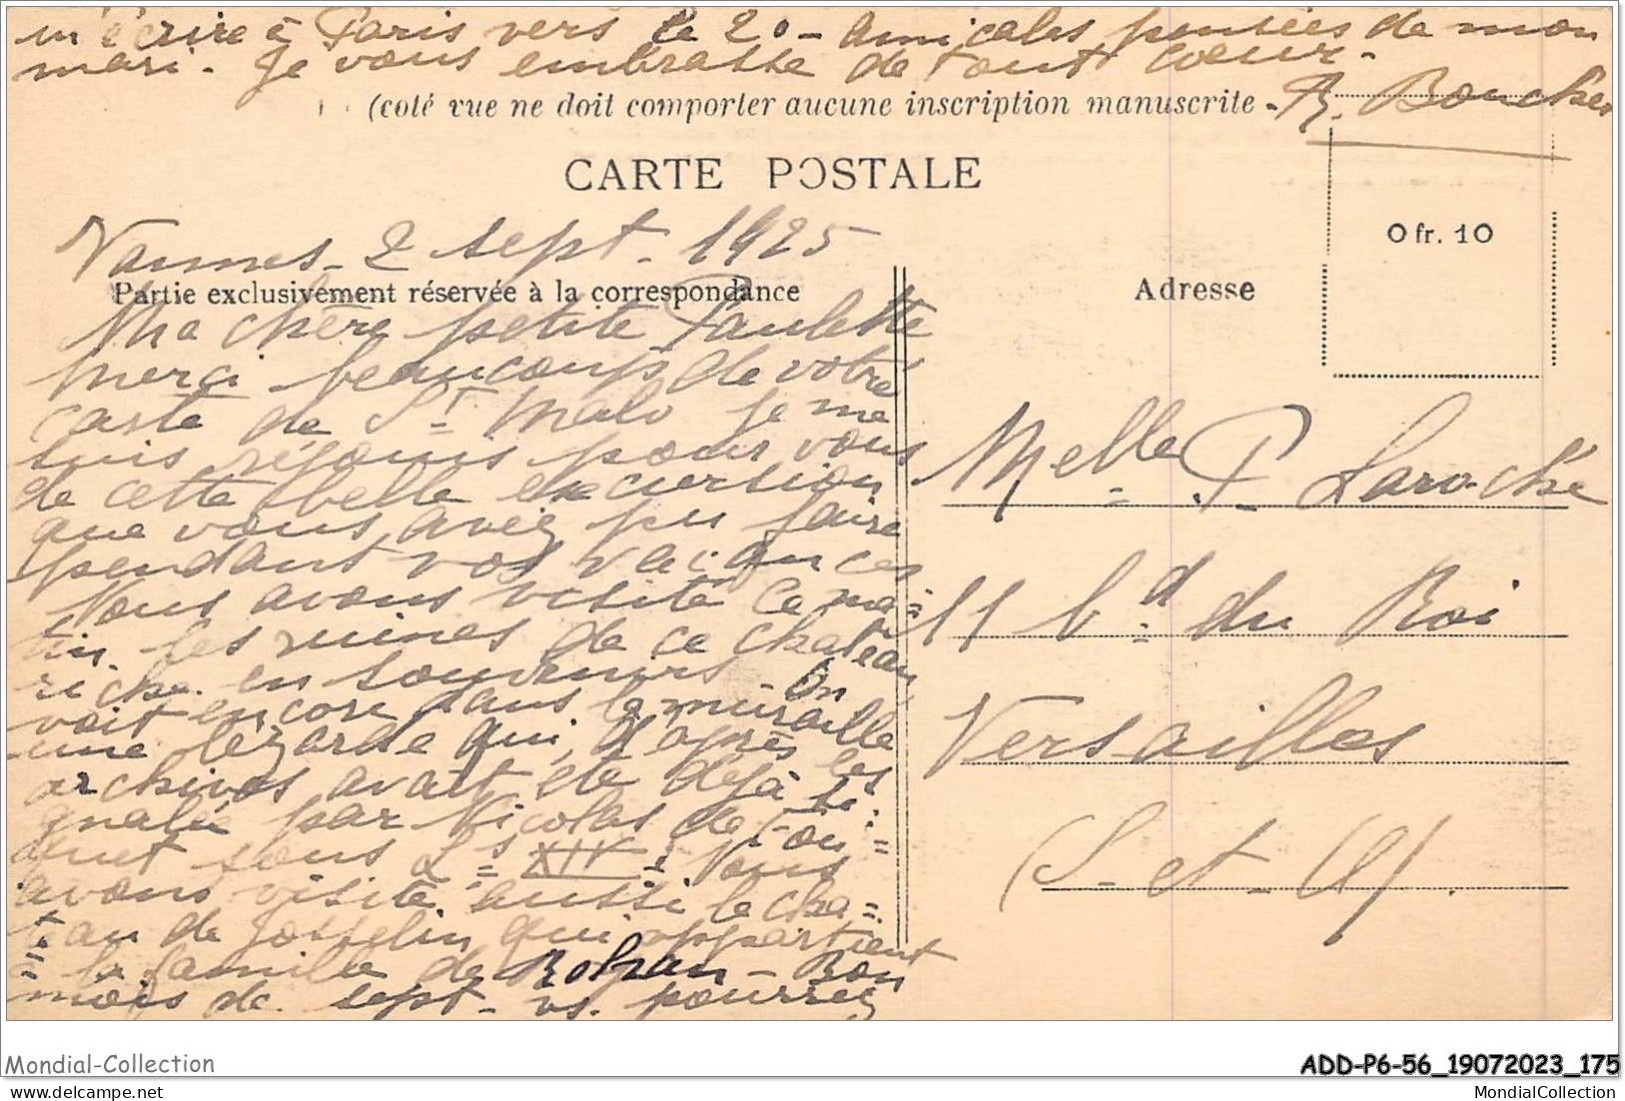 m'écrire à Paris vers le 20 - amicales pensées de mon
mari - Je vous embrasse de tout cœur -
(coté vue ne doit comporter aucune inscription manuscrite - R. Boucher
CARTE POSTALE
Vannes - 2 sept. 1925
0 fr. 10
Partie exclusivement réservée à la correspondance
Adresse
Ma chère petite Paulette
merci beaucoup de votre
carte de St Malo je me
suis réjouis pour vous
de cette belle excursion
que vous avez pu faire
pendant vos vacances
Nous avons visité ce ma=
tin les ruines de ce chateau
riche en souvenirs - On
voit encore dans la muraille
une lézarde qui, d'après les
archives avait été déjà si=
gnalée par Nicolas de Fou=
quet sous Ls XIV. Nous
avons visité aussi le cha=
teau de Josselin qui appartient
à la famille de Rohan - Bon
mois de sept - vs. pourrez
Melle P. Laroche
11 bd du Roi
Versailles
(S-et-O)
Mondial-Collection
ADD-P6-56_19072023_175
MondialCollection